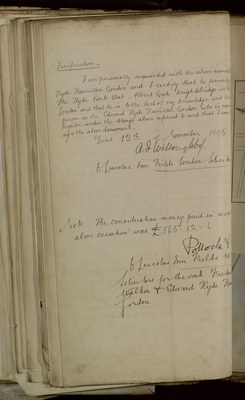 Verification.
I am personally acquainted with the above named
Hyde Hamilton Gordon and I certify that he formerly
the Hyde Park Club Albert Gate Knightsbridge
London and that he is to the best of my knowledge and
person as the Edward Hyde Hamilton Gordon who is
Register under the above referred to and that I am
sign the above document.
Dated 12th November 1895
6 Lincolns Inn Fields London
Note. The consideration money paid in
above cession was £365-12-6
Pollock &
6 Lincolns Inn Fields
Solicitors for the said
Walker & Edward Hyde
Gordon